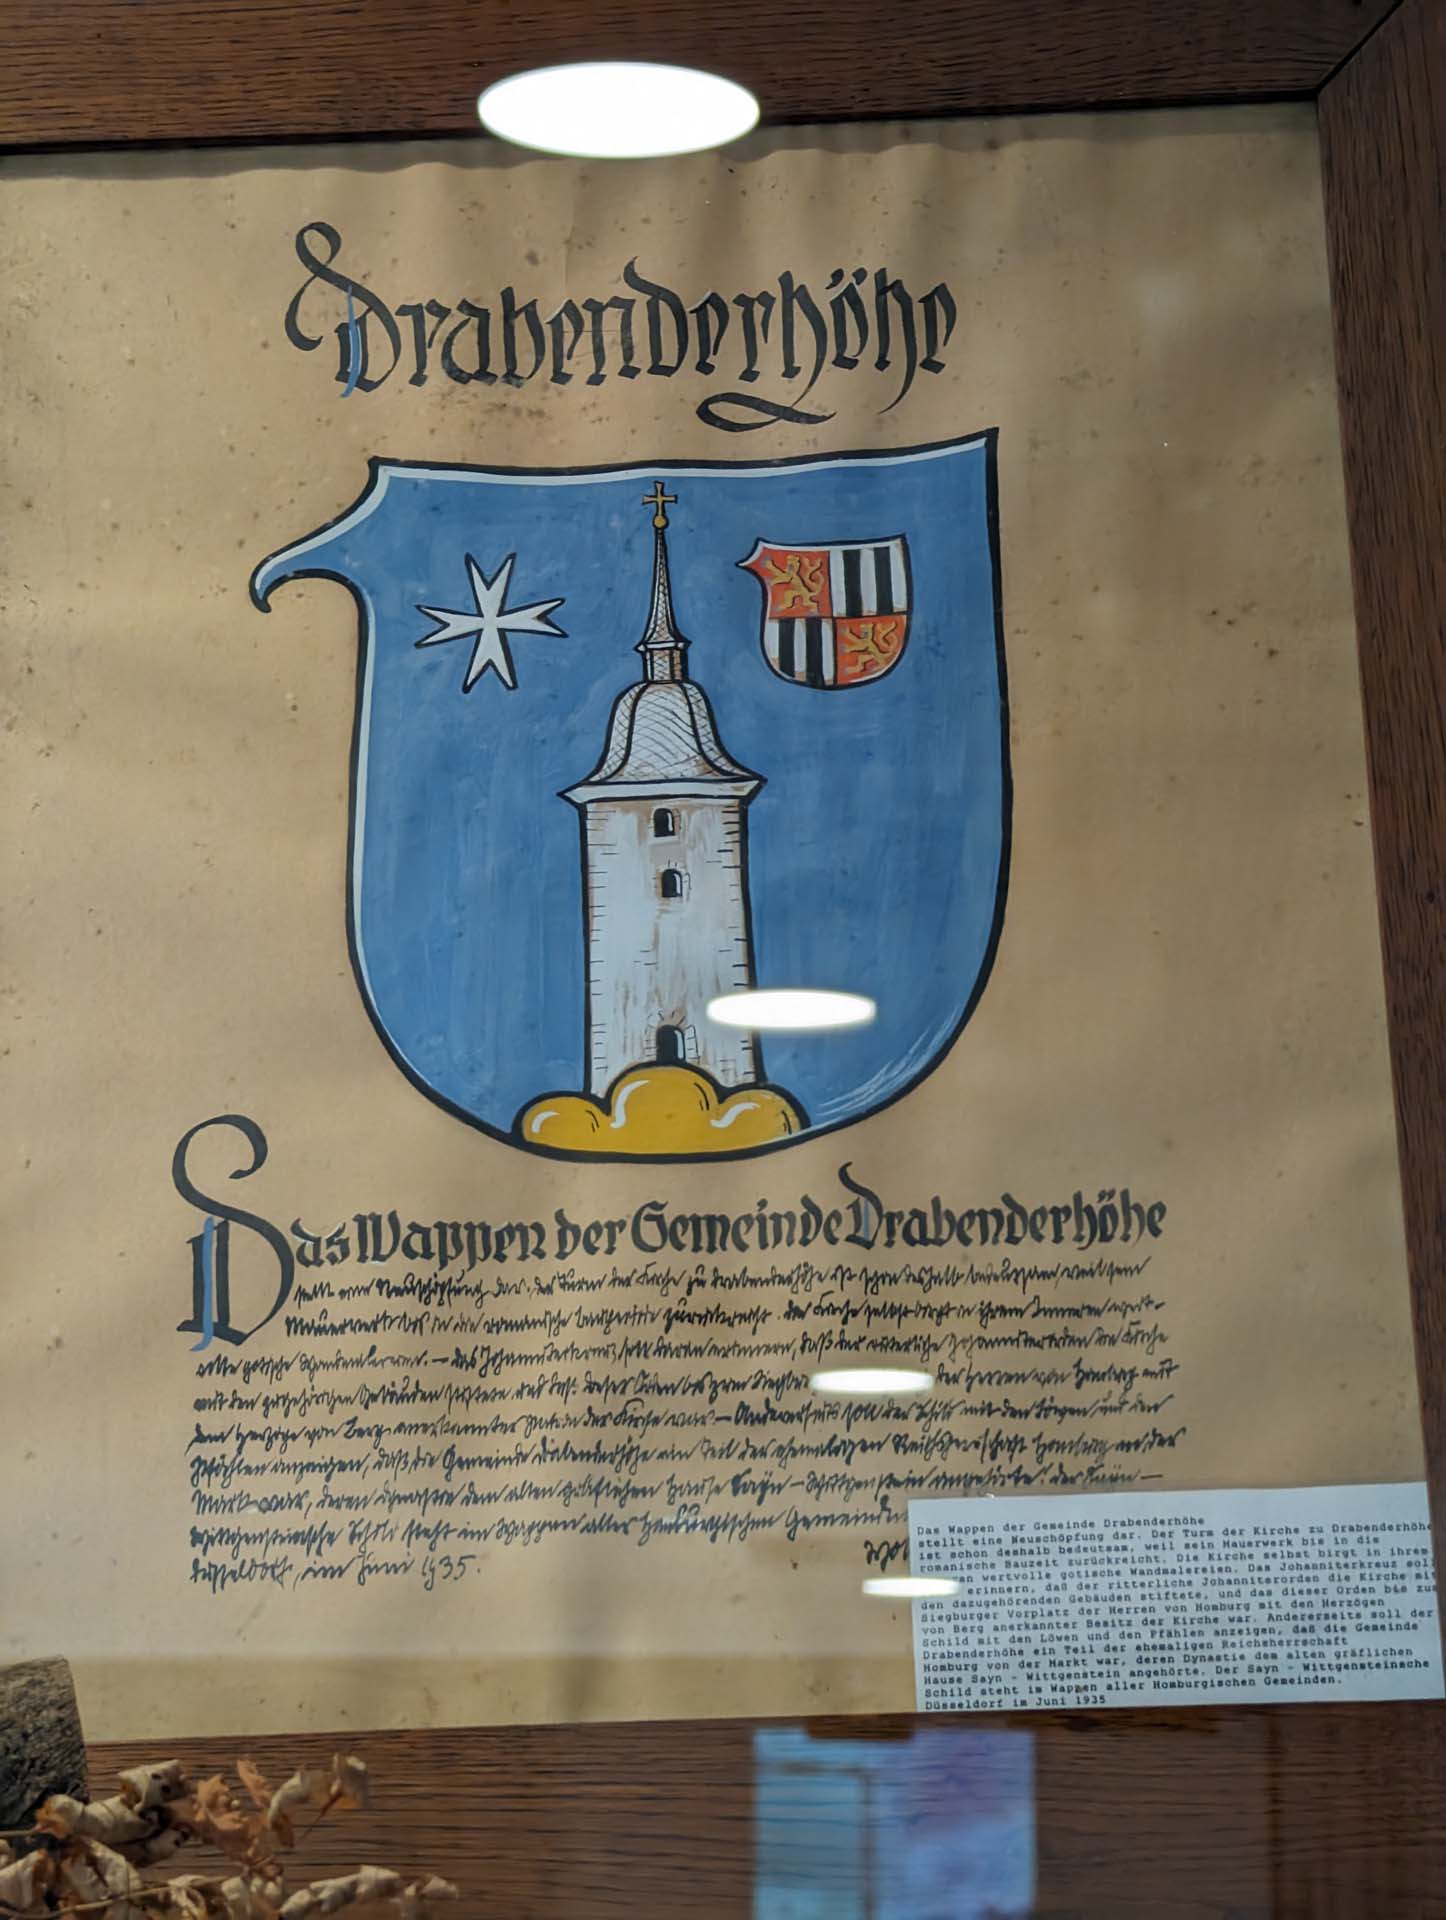 Drabenderhöhe
Das Wappen der Gemeinde Drabenderhöhe
stellt eine Neuschöpfung dar. der Turm der Kirche zu Drabenderhöhe ist schon deshalb bedeutsam, weil sein
Mauerwerk bis in die romanische Bauperiode zurückreicht. die Kirche selbst birgt in ihrem Inneren wert-
volle gotische Wandmalereien. — das Johanniterkreuz soll daran erinnern, daß der ritterliche Johanniterorden die Kirche
mit den zugehörigen Gebäuden stiftete und daß dieser Orden bis zum der Herren von Homburg mit
dem Herzoge von Berg anerkannter der Kirche war. — Andererseits soll der Schild mit den Löwen und den
Pfählen anzeigen, daß die Gemeinde Drabenderhöhe ein Teil der ehemaligen Reichsherrschaft Homburg an der
Mark war, deren Dynastie dem alten gräflichen Hause Sayn — Wittgenstein angehörte. der Sayn —
Wittgensteinsche Schild steht im Wappen aller Homburgischen Gemeinden
Düsseldorf, im Juni 1935.
Das Wappen der Gemeinde Drabenderhöhe
stellt eine Neuschöpfung dar. Der Turm der Kirche zu Drabenderhöhe
ist schon deshalb bedeutsam, weil sein Mauerwerk bis in die
romanische Bauzeit zurückreicht. Die Kirche selbst birgt in ihrem
wertvolle gotische Wandmalereien. Das Johanniterkreuz soll
erinnern, daß der ritterliche Johanniterorden die Kirche mit
den dazugehörenden Gebäuden stiftete, und das dieser Orden bis zum
Siegburger Vorplatz der Herren von Homburg mit den Herzögen
von Berg anerkannter Besitz der Kirche war. Andererseits soll der
Schild mit den Löwen und den Pfählen anzeigen, daß die Gemeinde
Drabenderhöhe ein Teil der ehemaligen Reichsherrschaft
Homburg von der Markt war, deren Dynastie dem alten gräflichen
Hause Sayn - Wittgenstein angehörte. Der Sayn - Wittgensteinsche
Schild steht im Wappen aller Homburgischen Gemeinden.
Düsseldorf im Juni 1935